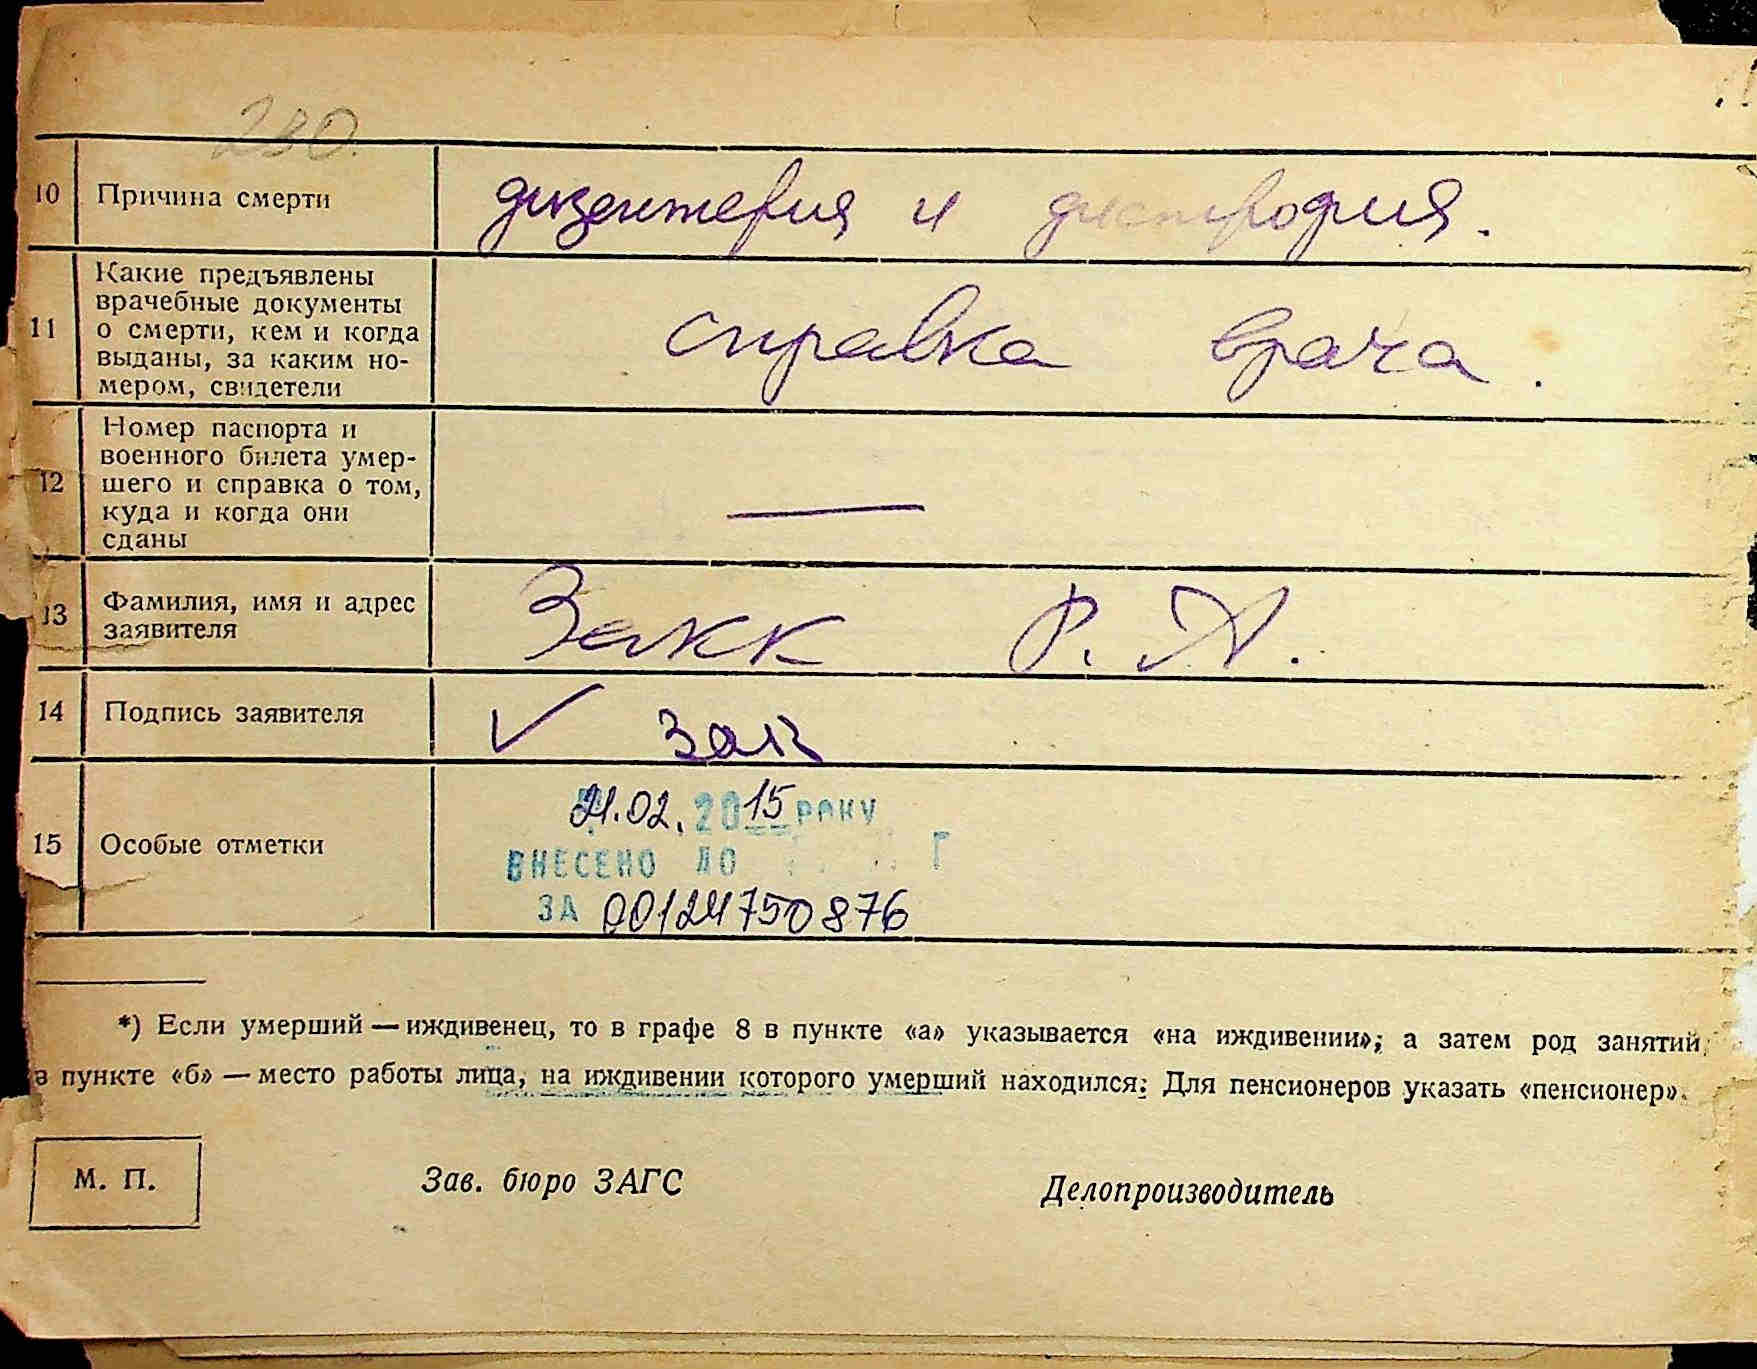 230.
10 Причина смерти дизентерия и дистрофия.
11 Какие предъявлены
врачебные документы
о смерти, кем и когда
выданы, за каким но-
мером, свидетели
справка врача.
12 Номер паспорта и
военного билета умер-
шего и справка о том,
куда и когда они
сданы
—
13 Фамилия, имя и адрес
заявителя
Закк Р. А.
14 Подпись заявителя ✓ Зак
15 Особые отметки
21.02.2015 РОКУ
ВНЕСЕНО ДО Г
ЗА 00124750876
*) Если умерший — иждивенец, то в графе 8 в пункте «а» указывается «на иждивении»; а затем род занятий,
в пункте «б» — место работы лица, на иждивении которого умерший находился; Для пенсионеров указать «пенсионер».
М. П.
Зав. бюро ЗАГС
Делопроизводитель